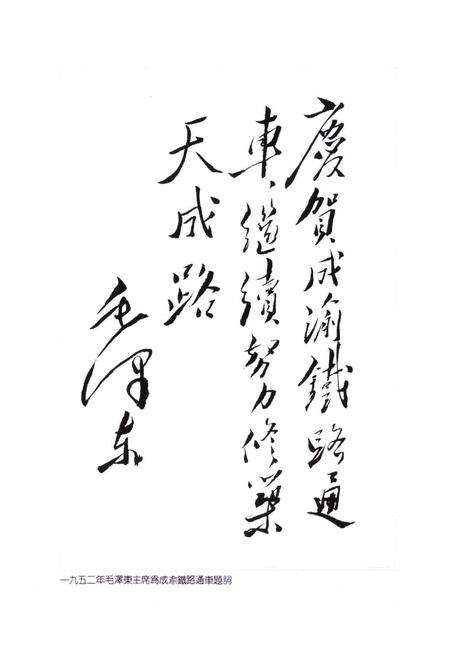 慶賀成渝鐵路通
車、繼續努力修築
天成路
毛澤东
一九五二年毛澤東主席爲成渝鐵路通車題詞